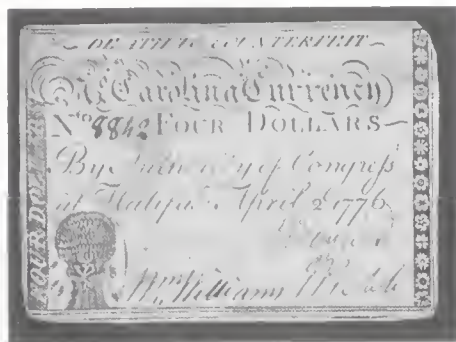 DEATH TO COUNTERFEIT
No. Carolina Currency
No. 8842 FOUR DOLLARS
By Authority of Congress
at Halifax April 2d 1776
Wm. Williams
FOUR DOLLARS